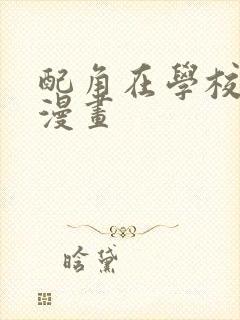 配角在學校
漫畫
晗黛